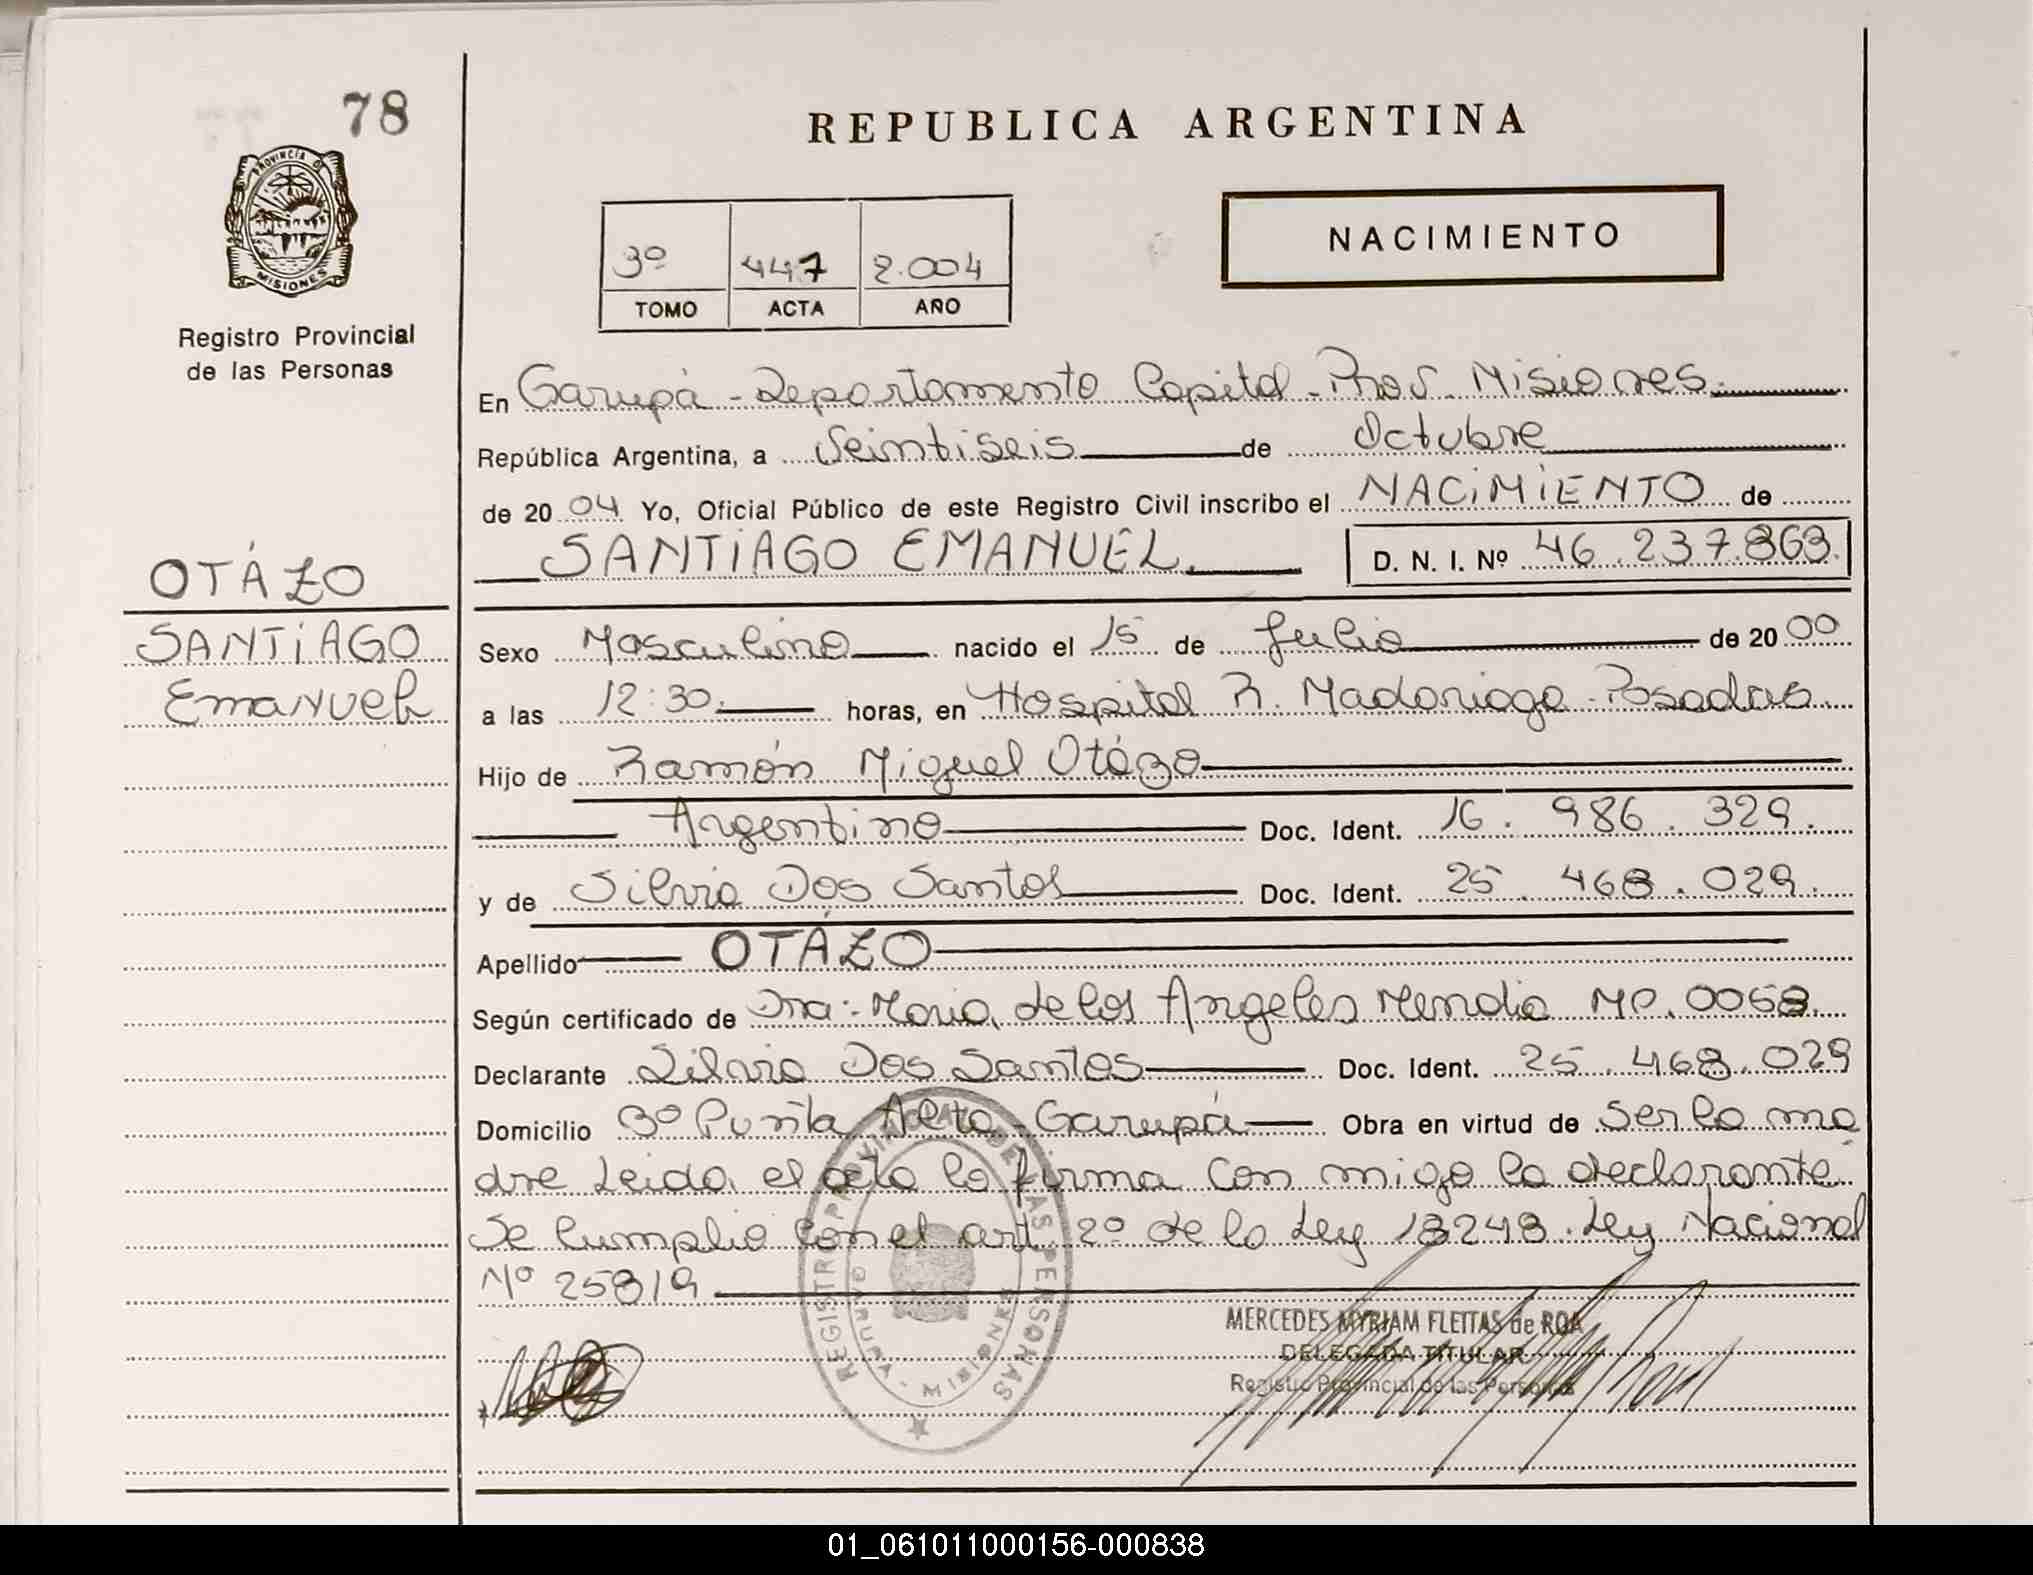 78
PROVINCIA DE
MISIONES
Registro Provincial
de las Personas
OTÁZO
SANTIAGO
Emanuel
REPUBLICA ARGENTINA
3º 447 2.004
TOMO ACTA AÑO
NACIMIENTO
En Garupá - Departamento Capital - Prov. Misiones.
República Argentina, a Veintiseis de Octubre
de 20 04 Yo, Oficial Público de este Registro Civil inscribo el NACIMIENTO de
SANTIAGO EMANUEL D. N. I. Nº 46.237.863.
Sexo Masculino nacido el 15 de Julio de 20 00
a las 12:30. horas, en Hospital R. Madariaga - Posadas
Hijo de Ramón Miguel Otázo
Argentino Doc. Ident. 16.986.329.
y de Silvia Dos Santos Doc. Ident. 25.468.029.
Apellido OTÁZO
Según certificado de Dra: Maria de los Angeles Mendia MP. 0058.
Declarante Silvia Dos Santos Doc. Ident. 25.468.029
Domicilio Bº Punta Alta - Garupá Obra en virtud de ser la ma
dre Leida el acta la firma con migo la declarante
Se Cumplio con el art. 2º de la Ley 18248. Ley Nacional
Nº 25819
REGISTRO PROVINCIAL DE LAS PERSONAS
GARUPA - MISIONES
MERCEDES MYRIAM FLEITAS de ROA
DELEGADA TITULAR
Registro Provincial de las Personas
01_061011000156-000838